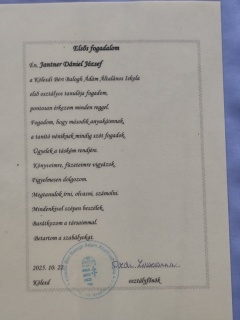 Elsős fogadalom
Én, Jantner Dániel József
a Kölesdi Béri Balogh Ádám Általános Iskola
első osztályos tanulója fogadom,
pontosan érkezem minden reggel.
Fogadom, hogy második anyukámnak,
a tanító néniknek mindig szót fogadok.
Ügyelek a táskám rendjére.
Könyveimre, füzeteimre vigyázok.
Figyelmesen dolgozom.
Megtanulok írni, olvasni, számolni.
Mindenkivel szépen beszélek.
Barátkozom a társaimmal.
Betartom a szabályokat.
2025. 10. 22.
Kölesd
osztályfőnök